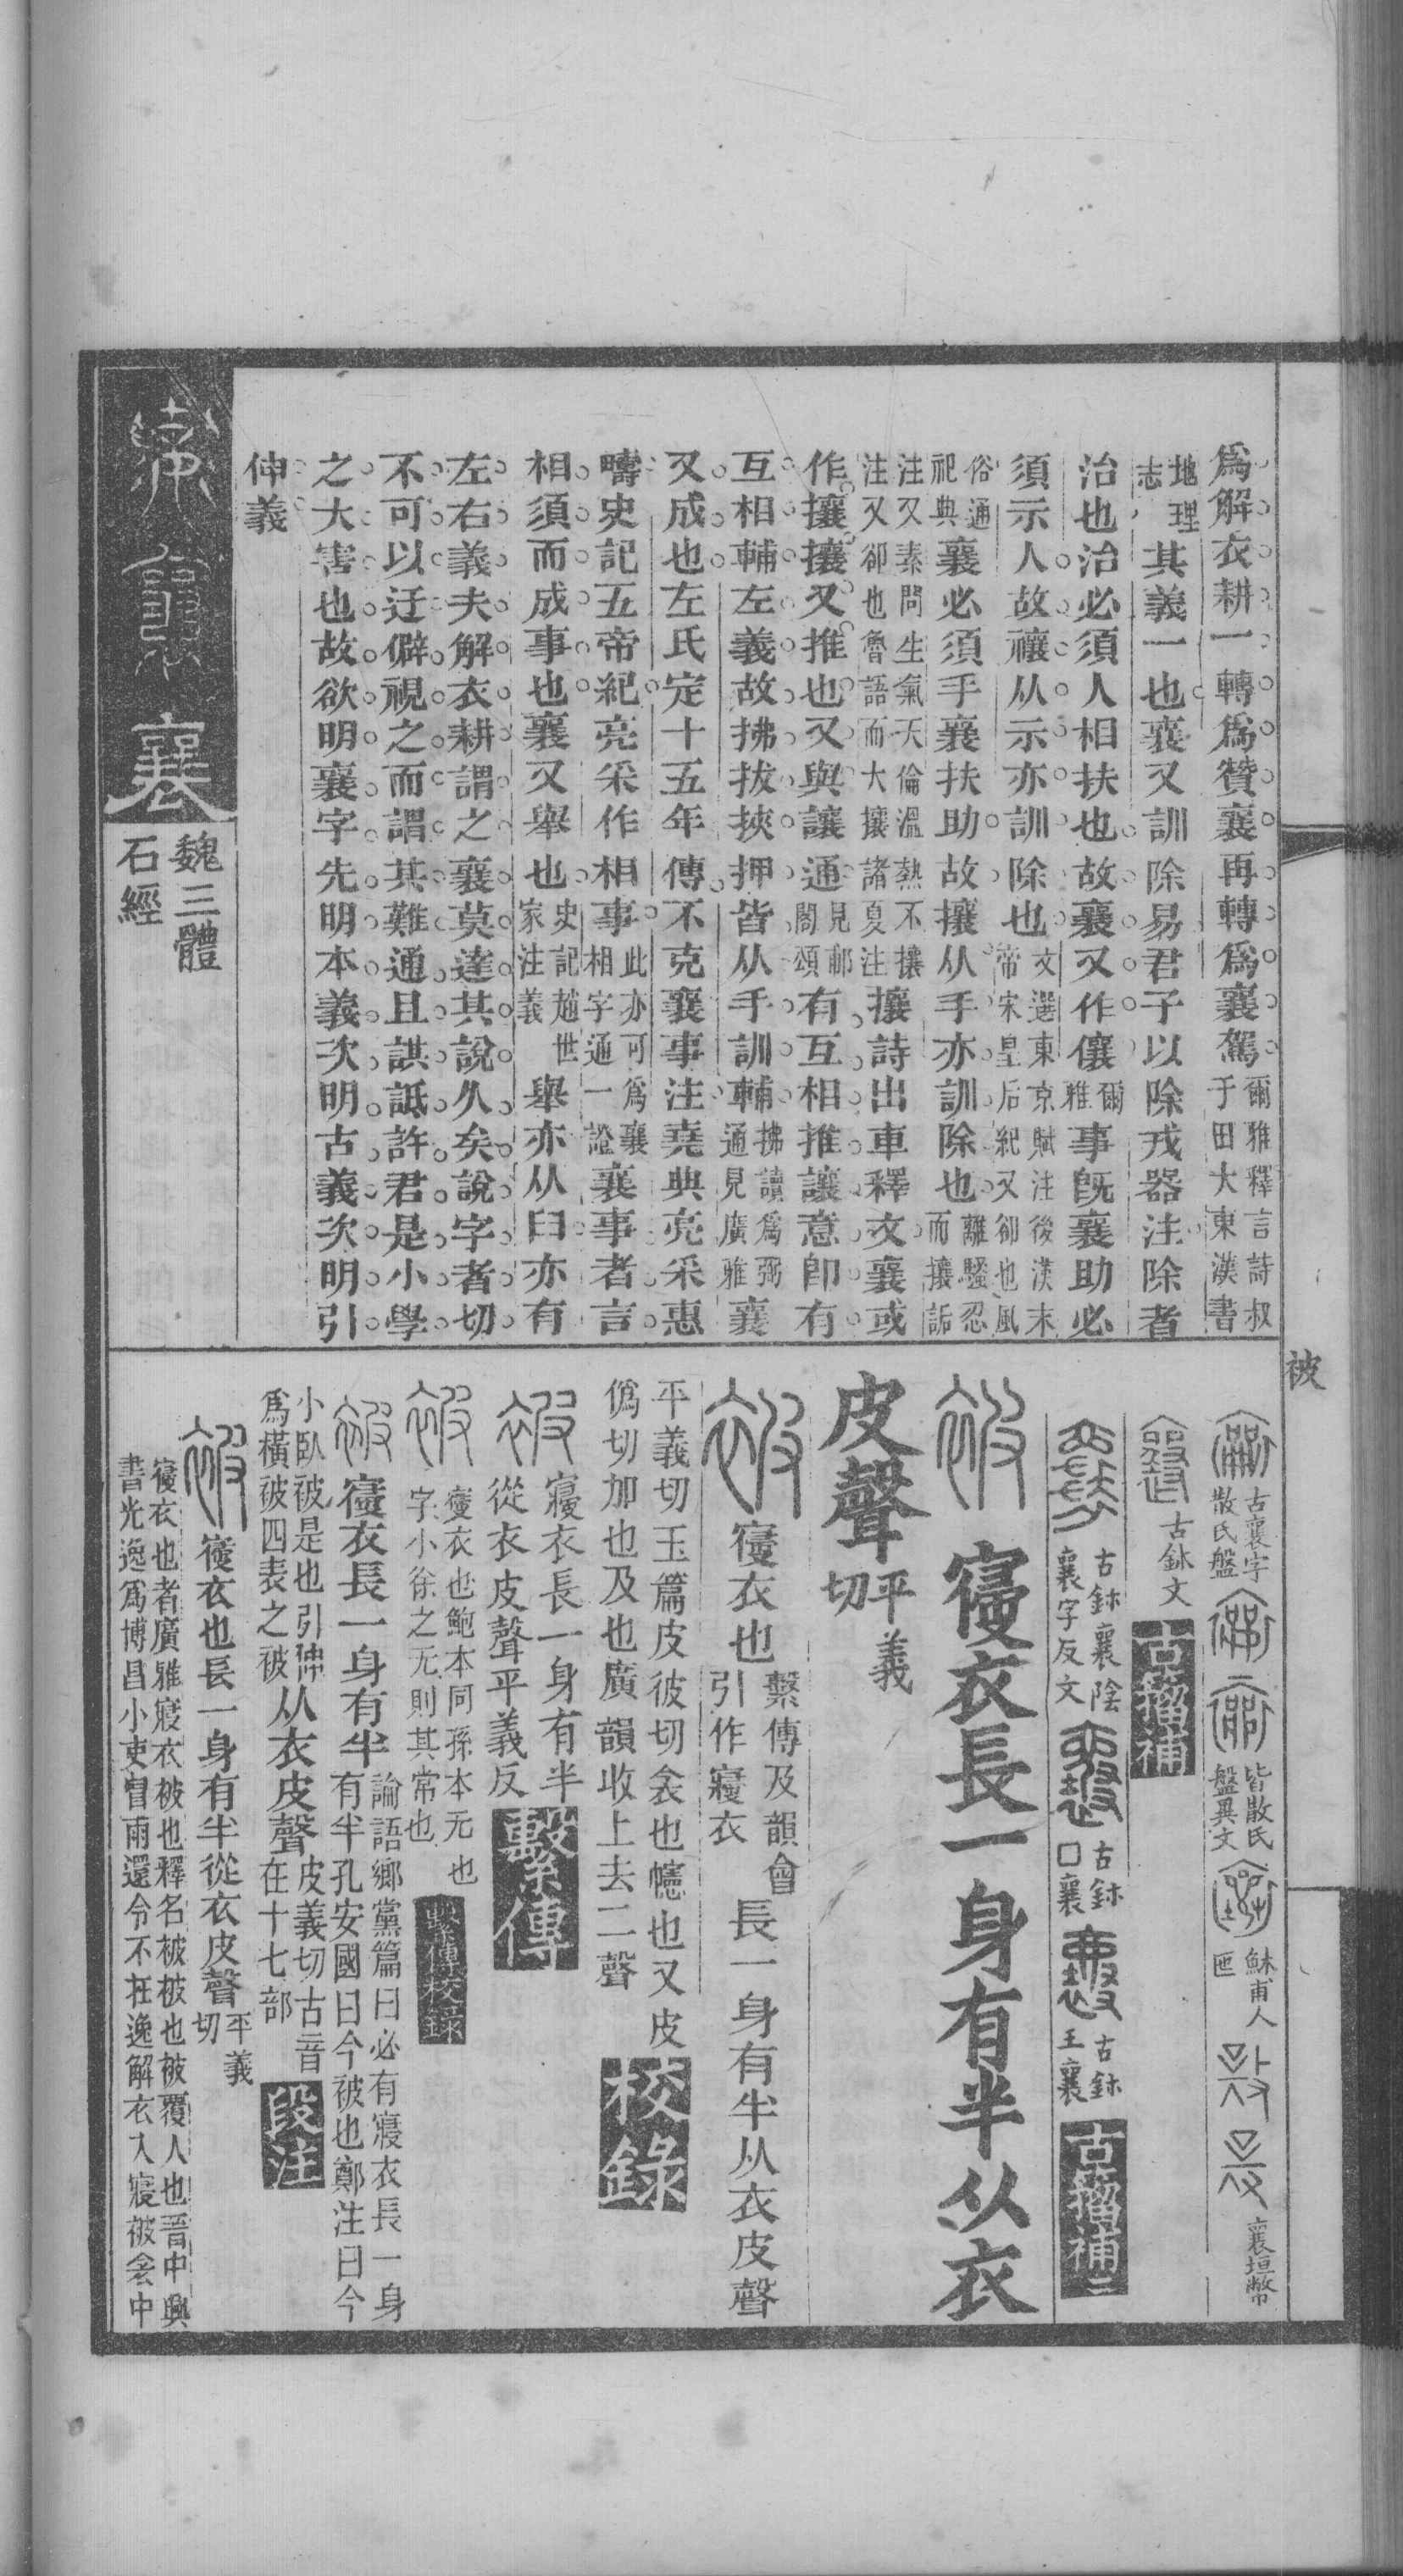 爲解衣耕一轉爲贊襄再轉爲襄駕爾雅釋言詩叔于田大東漢書
地理志其義一也襄又訓除易君子以除戎器注除者
治也治必須人相扶也故襄又作儴爾雅事既襄助必
須示人故禳从示亦訓除也文選東京賦注後漢末帝宋皇后紀又卻也風
俗通祀典襄必須手襄扶助故攘从手亦訓除也離騷忍而攘詬
注又素問生氣天倫溫熱不攘注又卻也魯語而大攘諸夏注攘詩出車釋文襄或
作攘攘又推也又與讓通見鄘閟頌有互相推讓意卽有
互相輔左義故拂拔挾押皆从手訓輔拂讀爲弼通見廣雅襄
又成也左氏定十五年傳不克襄事注堯典亮采惠
疇史記五帝紀亮采作相事此亦可爲襄相字通一證襄事者言
相須而成事也襄又舉也史記趙世家注義舉亦从𦥑亦有
左右義夫解衣耕謂之襄莫達其說久矣說字者切
不可以迂僻視之而謂其難通且諆詆許君是小學
之大害也故欲明襄字先明本義次明古義次明引
伸義
襄
魏三體
石經
被
古襄字散氏盤
皆散氏盤異文
穌甫人匜
襄垣幣
古鉢文
古籀補
古鉢襄陰
襄字反文
古鉢□襄
古鉢王襄
古籀補二
寑衣長一身有半从衣
皮聲平義切
寑衣也繫傳及韻會引作寢衣長一身有半从衣皮聲
平義切玉篇皮彼切衾也幰也又皮
僞切加也及也廣韻收上去二聲
校錄
寢衣長一身有半
從衣皮聲平義反
繫傳
寑衣也鮑本同孫本无也
字小徐之无則其常也
繫傳校錄
寑衣長一身有半論語鄉黨篇曰必有寢衣長一身有半孔安國曰今被也鄭注曰今
小臥被是也引伸爲橫被四表之被从衣皮聲皮義切古音在十七部
段注
寑衣也長一身有半從衣皮聲平義切
寑衣也者廣雅寢衣被也釋名被被也被覆人也晉中興
書光逸爲博昌小吏冒雨還令不在逸解衣入寢被衾中